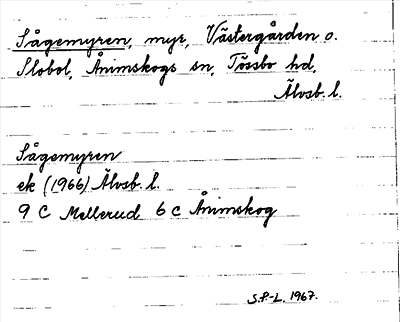 Sågemyren, myr, Västergården o.
Slobol, Ånimskogs sn, Tössbo hd,
Älvsb. l.
Sågemyren
ek (1966) Älvsb. l.
9 C Mellerud 6 c Ånimskog
S.F-L. 1967.